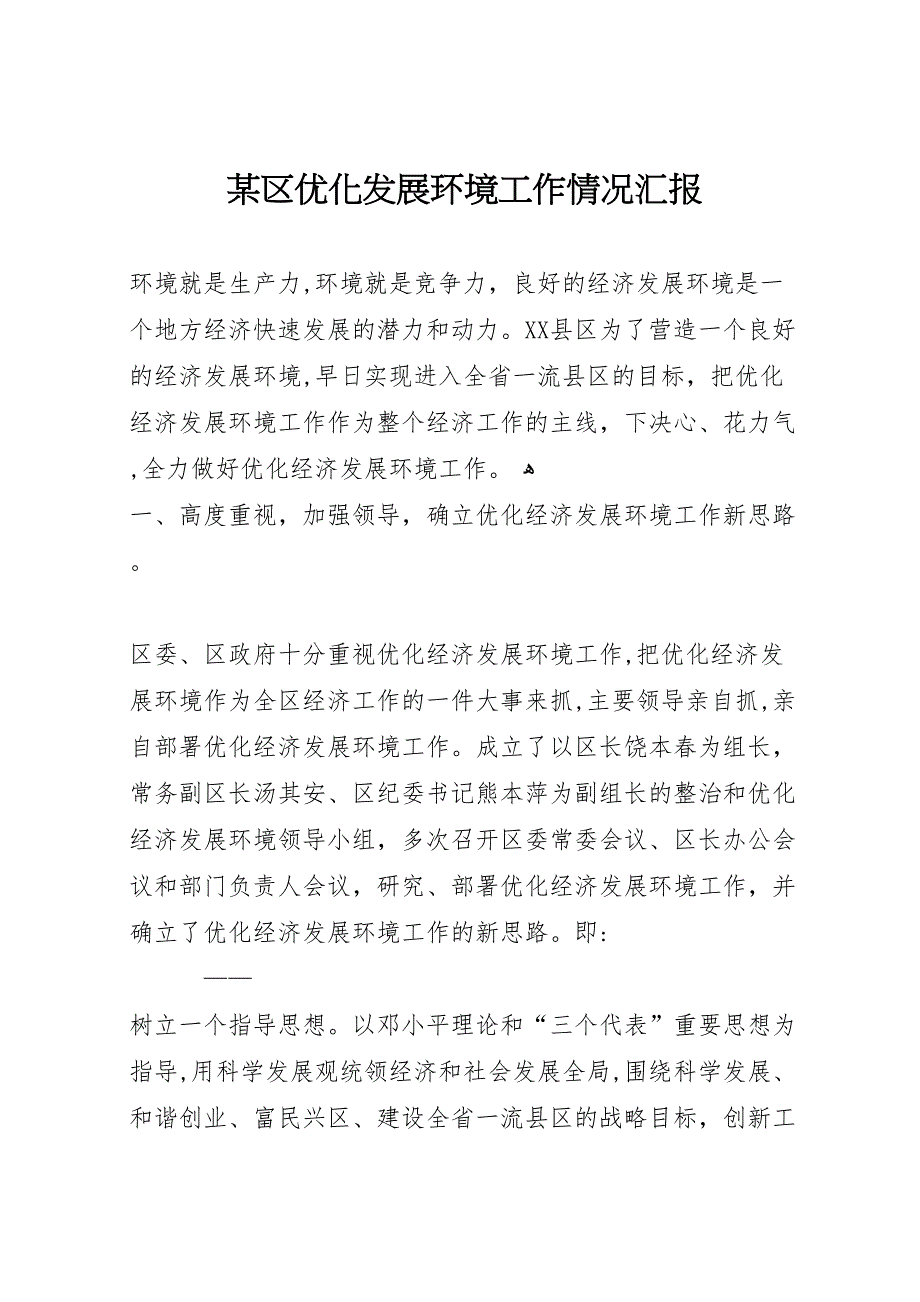 某区优化发展环境工作情况汇报
环境就是生产力,环境就是竞争力，良好的经济发展环境是一
个地方经济快速发展的潜力和动力。XX县区为了营造一个良好
的经济发展环境,早日实现进入全省一流县区的目标，把优化
经济发展环境工作作为整个经济工作的主线，下决心、花力气
,全力做好优化经济发展环境工作。 ﻫ
一、高度重视，加强领导，确立优化经济发展环境工作新思路
。
区委、区政府十分重视优化经济发展环境工作,把优化经济发
展环境作为全区经济工作的一件大事来抓,主要领导亲自抓,亲
自部署优化经济发展环境工作。成立了以区长饶本春为组长，
常务副区长汤其安、区纪委书记熊本萍为副组长的整治和优化
经济发展环境领导小组，多次召开区委常委会议、区长办公会
议和部门负责人会议，研究、部署优化经济发展环境工作，并
确立了优化经济发展环境工作的新思路。即:
——
树立一个指导思想。以邓小平理论和“三个代表”重要思想为
指导,用科学发展观统领经济和社会发展全局,围绕科学发展、
和谐创业、富民兴区、建设全省一流县区的战略目标，创新工